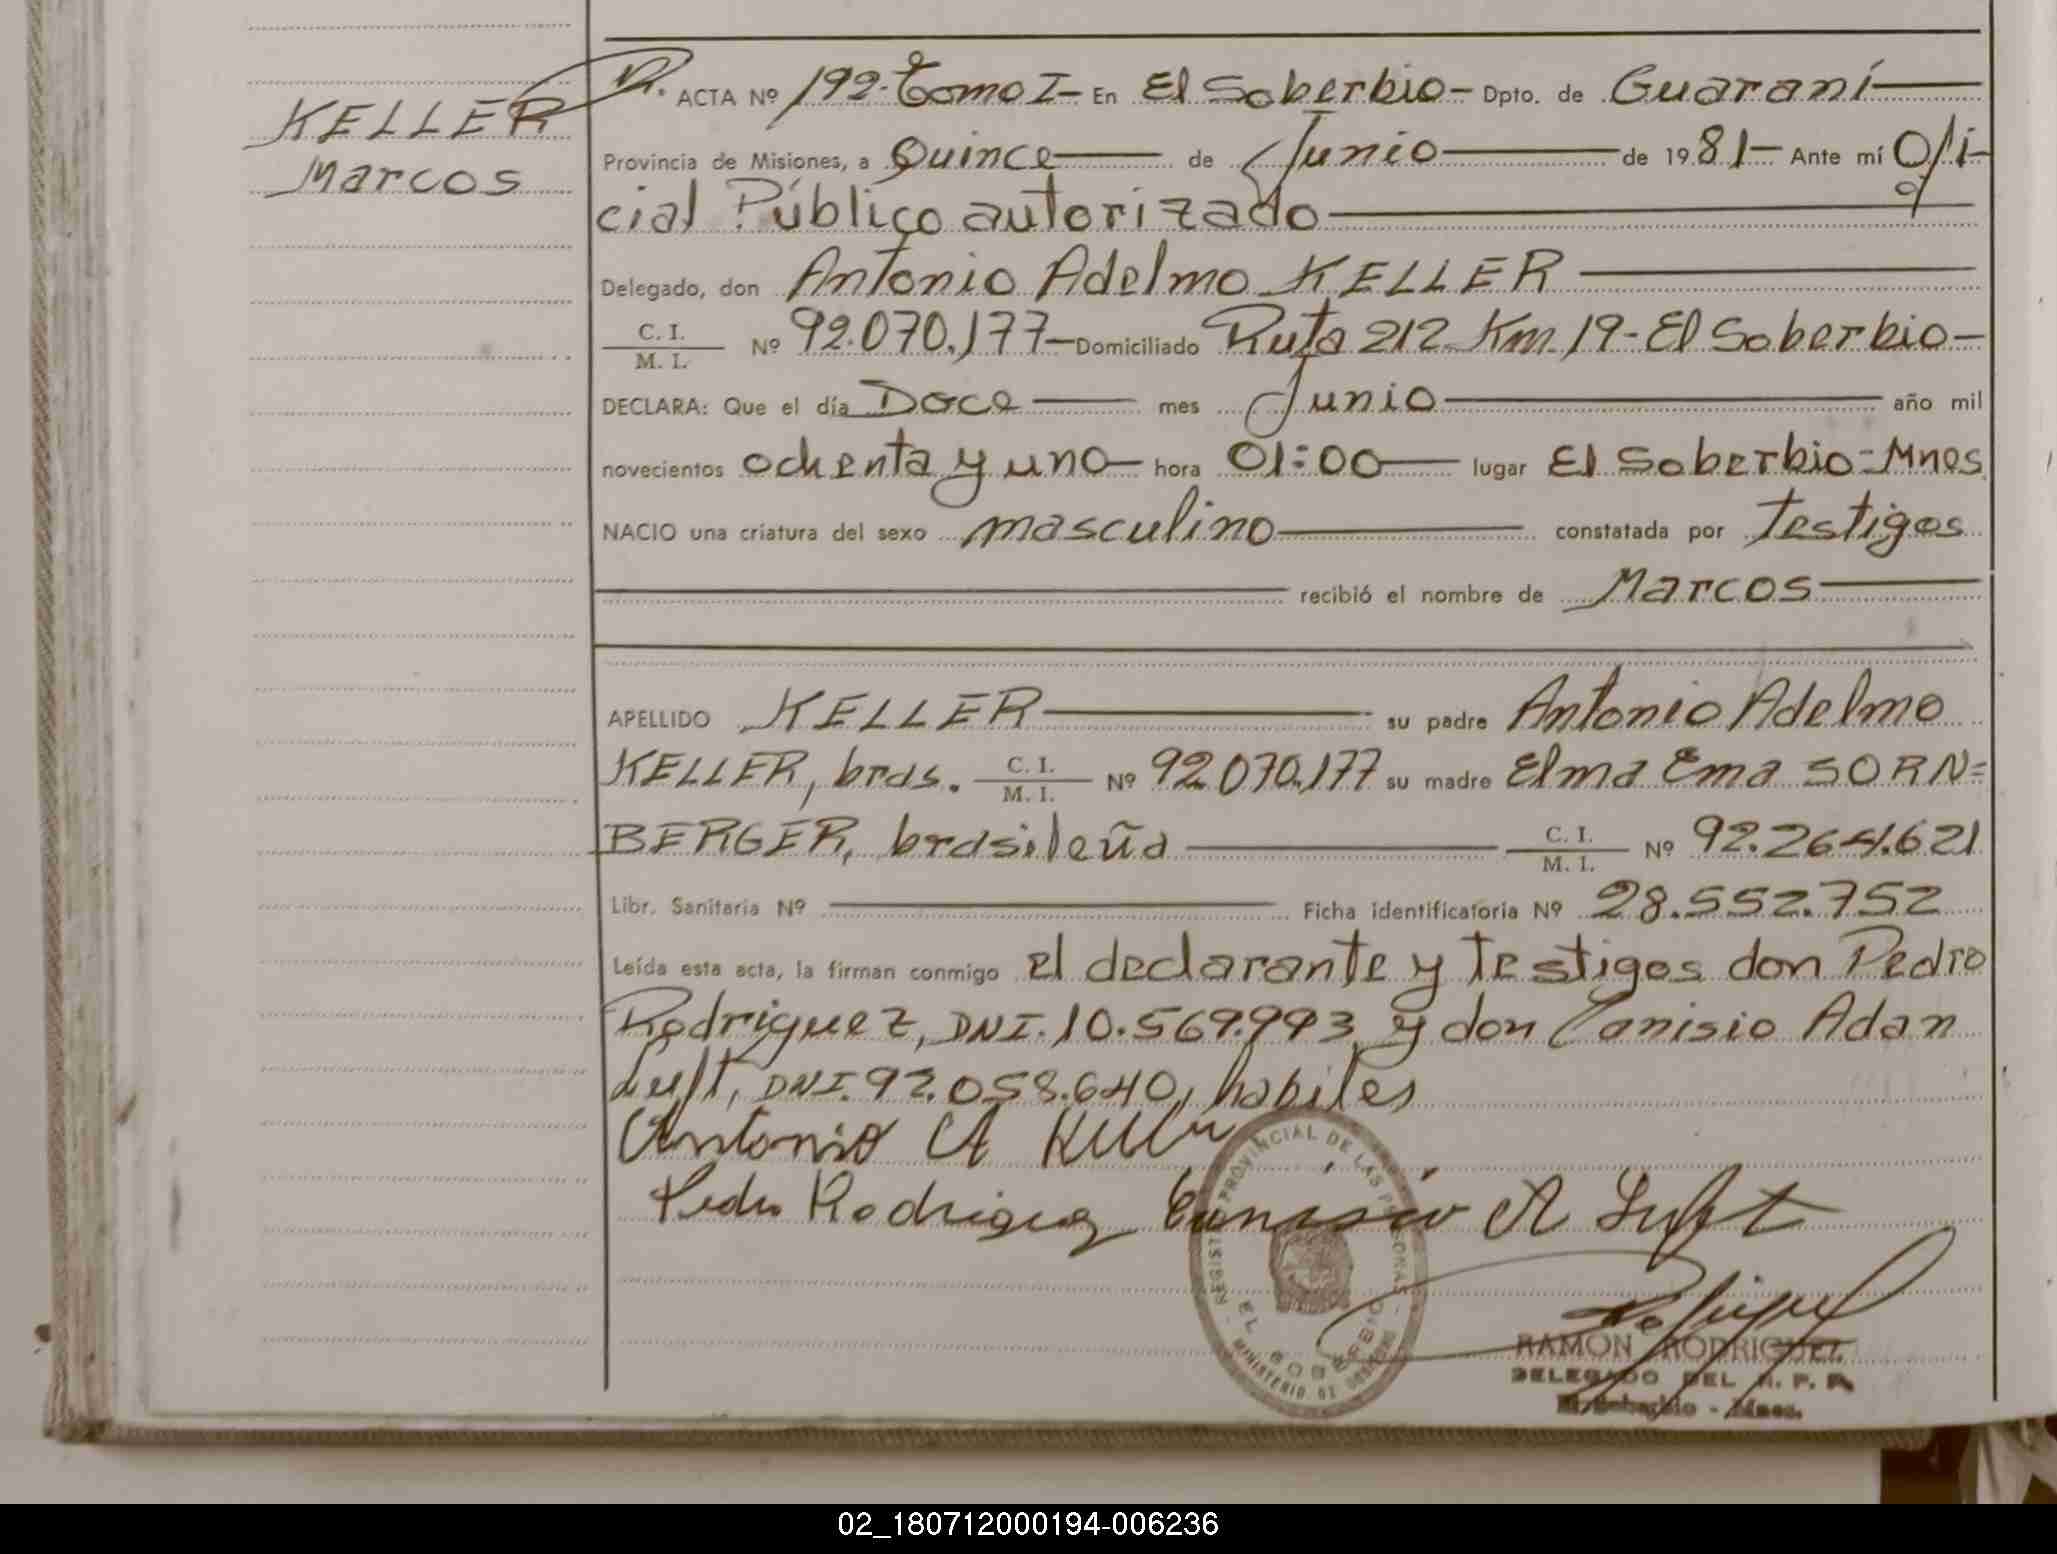 KELLER
Marcos
ACTA Nº 192-Tomo I- En El Soberbio- Dpto. de Guaraní
Provincia de Misiones, a Quince de Junio de 1981- Ante mí Ofi-
cial Público autorizado
Delegado, don Antonio Adelmo KELLER
C. I. / M. I. Nº 92.070.177- Domiciliado Ruta 212 Km. 19- El Soberbio-
DECLARA: Que el día Doce mes Junio año mil
novecientos ochenta y uno hora 01:00 lugar El Soberbio-Mnes
NACIO una criatura del sexo masculino constatada por Testigos
recibió el nombre de Marcos
APELLIDO KELLER su padre Antonio Adelmo
KELLER, bras. C. I. / M. I. Nº 92.070.177 su madre Elma Ema SORN=
BERGER, brasileña C. I. / M. I. Nº 92.264.621
Libr. Sanitaria Nº Ficha identificatoria Nº 28.552.752
Leída esta acta, la firman conmigo el declarante y Testigos don Pedro
Rodriguez, DNI. 10.569.993 y don Canisio Adan
Luft, DNI. 92.058.640, habiles
Antonio A Keller
Pedro Rodriguez Canisio A Luft
REGISTRO PROVINCIAL DE LAS PERSONAS
EL SOBERBIO
MINISTERIO DE GOBIERNO
RAMON RODRIGUEZ
DELEGADO DEL R. P. P.
El Soberbio - Mnes.
02_180712000194-006236